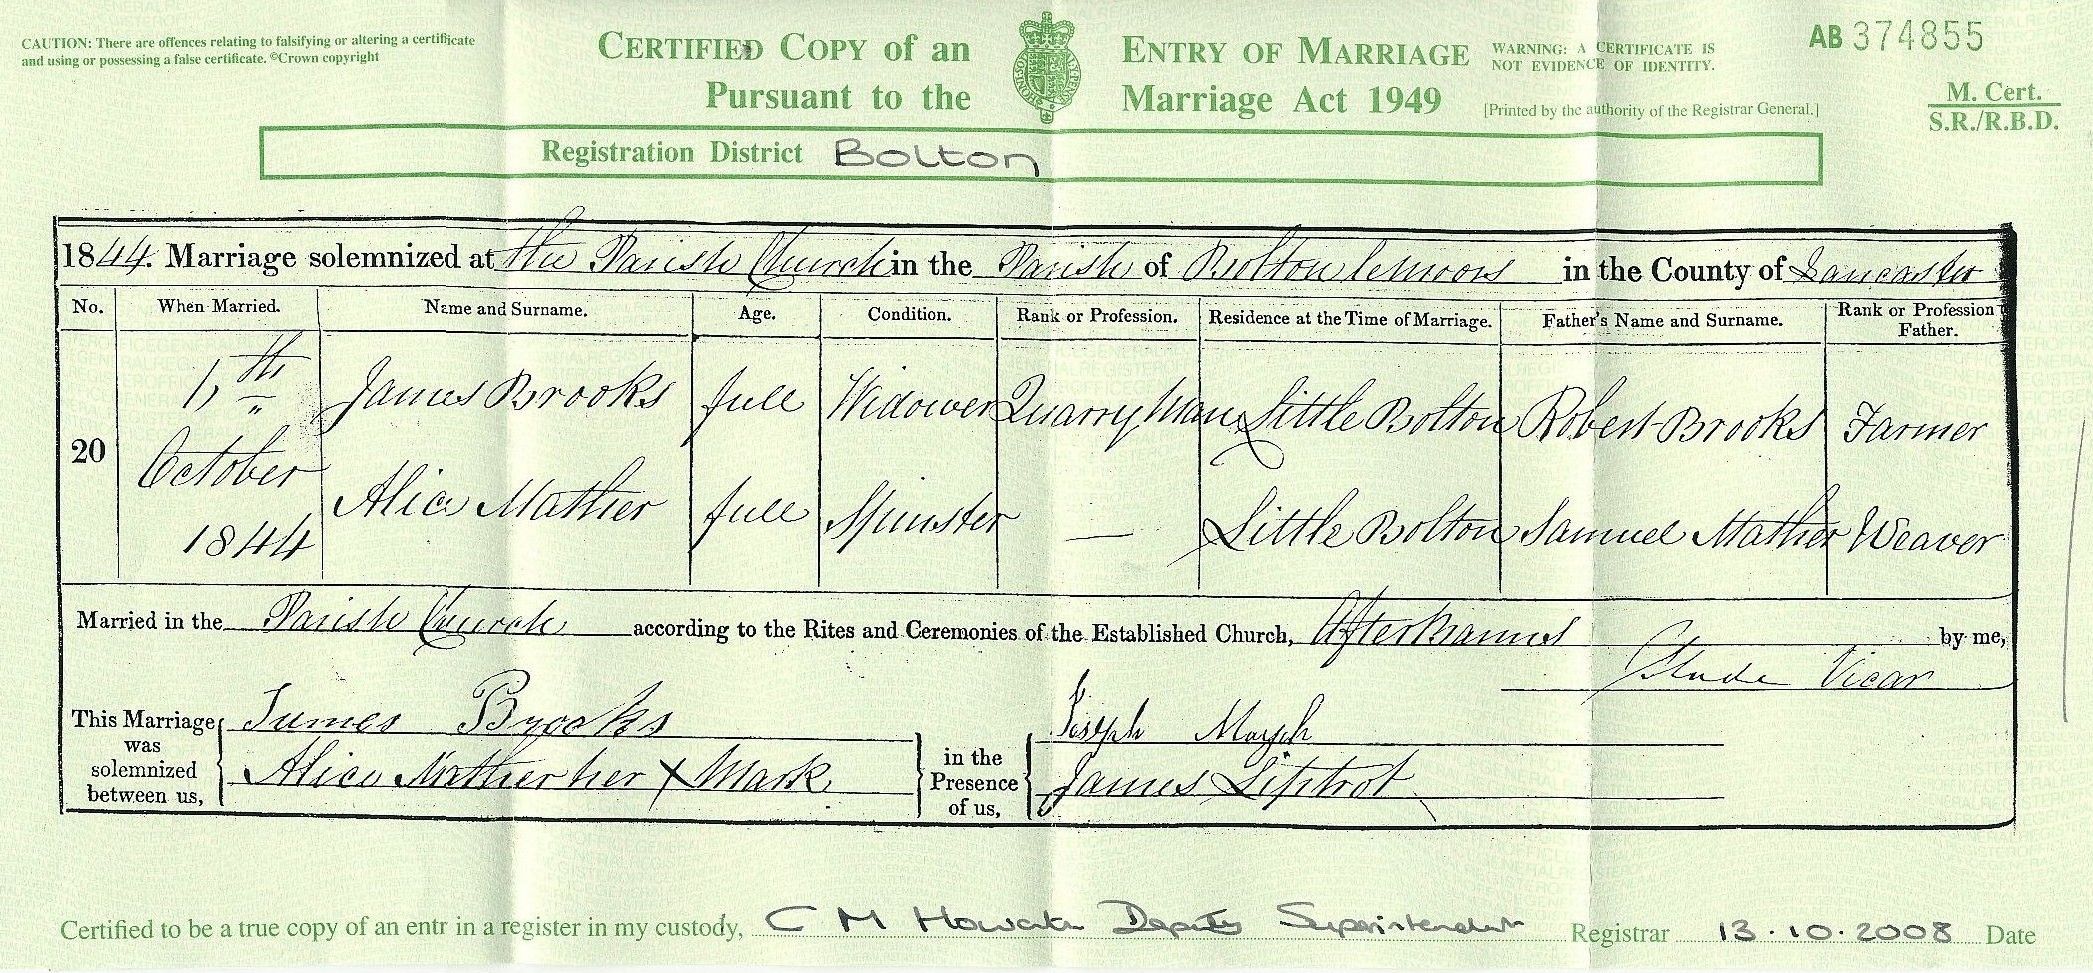 CAUTION: There are offences relating to falsifying or altering a certificate
and using or possessing a false certificate. ©Crown copyright
CERTIFIED COPY of an ENTRY OF MARRIAGE
Pursuant to the Marriage Act 1949
WARNING: A CERTIFICATE IS
NOT EVIDENCE OF IDENTITY.
[Printed by the authority of the Registrar General.]
AB 374855
M. Cert.
S.R./R.B.D.
Registration District Bolton
1844. Marriage solemnized at the Parish Church in the Parish of Bolton le moors in the County of Lancaster
No. When Married. Name and Surname. Age. Condition. Rank or Profession. Residence at the Time of Marriage. Father's Name and Surname. Rank or Profession Father.
James Brooks full Widower Quarryman Little Bolton Robert Brooks Farmer
20 October
1844 Alice Mather full Spinster — Little Bolton Samuel Mather Weaver
Married in the Parish Church according to the Rites and Ceremonies of the Established Church, After Banns by me,
Slade Vicar
This Marriage was solemnized between us, James Brooks
Alice Mather her X Mark
in the Presence of us, Joseph
James Liptrot
Certified to be a true copy of an entr in a register in my custody, C M Deputy Superintendent Registrar 13.10.2008 Date